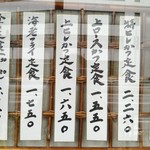 特ヒレかつ定食 二、二六〇
上ロースかつ定食 一、五五〇
上ヒレかつ定食 一、六五〇
海老フライ定食 一、七五〇
定食